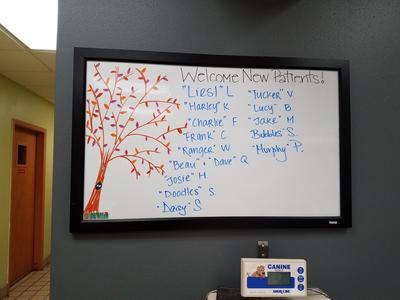 Welcome New Patients!
"Liesl" L
"Harley" K
"Charlie" F
"Frank" C
"Ranger" W
"Beau" + "Dave" Q
"Josie" H.
"Doodles" S.
"Daisy" S
"Tucker" V
"Lucy" B
"Jake" M
"Bubbles" S.
"Murphy" P.
CANINE